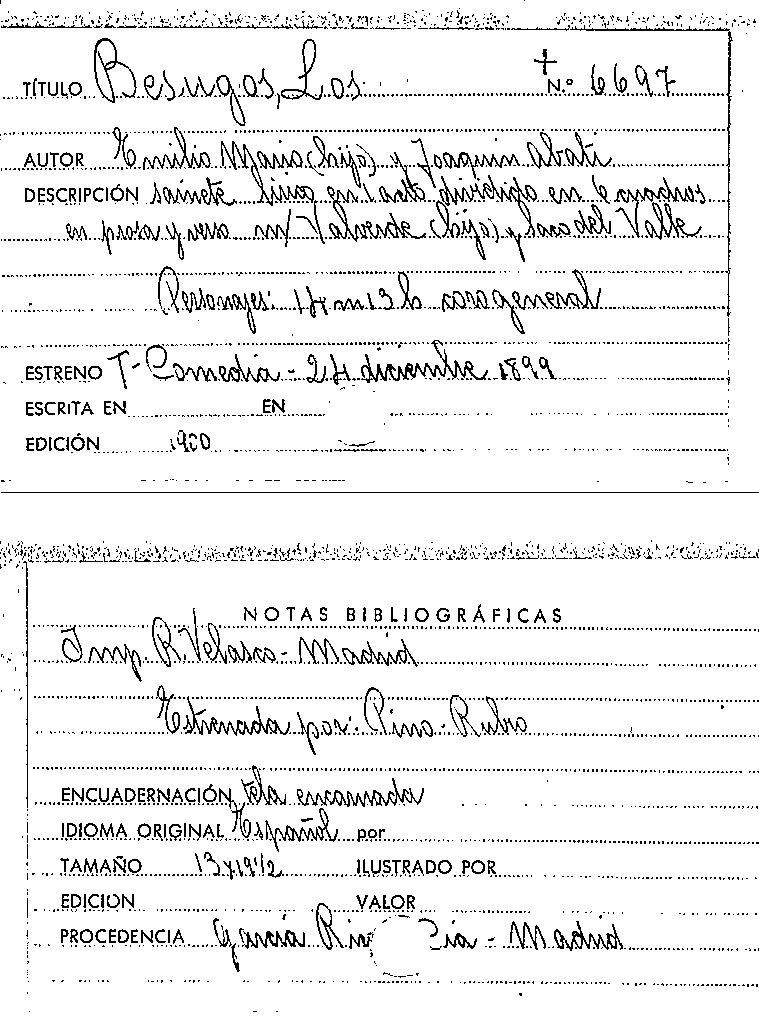 TÍTULO Besugos, Los N.º 6697
AUTOR Emilio Mario (hijo) y Joaquin Abati
DESCRIPCIÓN sainete lírico en 1 acto dividido en 6 cuadros
en prosa y verso m/ Valverde (hijo) y Saco del Valle
Personajes: 14 m 13 h coro general
ESTRENO T- Comedia - 24 diciembre 1899
ESCRITA EN EN
EDICIÓN 1900
NOTAS BIBLIOGRÁFICAS
Imp. R. Velasco - Madrid
Estrenada por: Pino - Rubio
ENCUADERNACIÓN tela encarnada
IDIOMA ORIGINAL Español por
TAMAÑO 13x19½ ILUSTRADO POR
EDICION VALOR
PROCEDENCIA García - Madrid